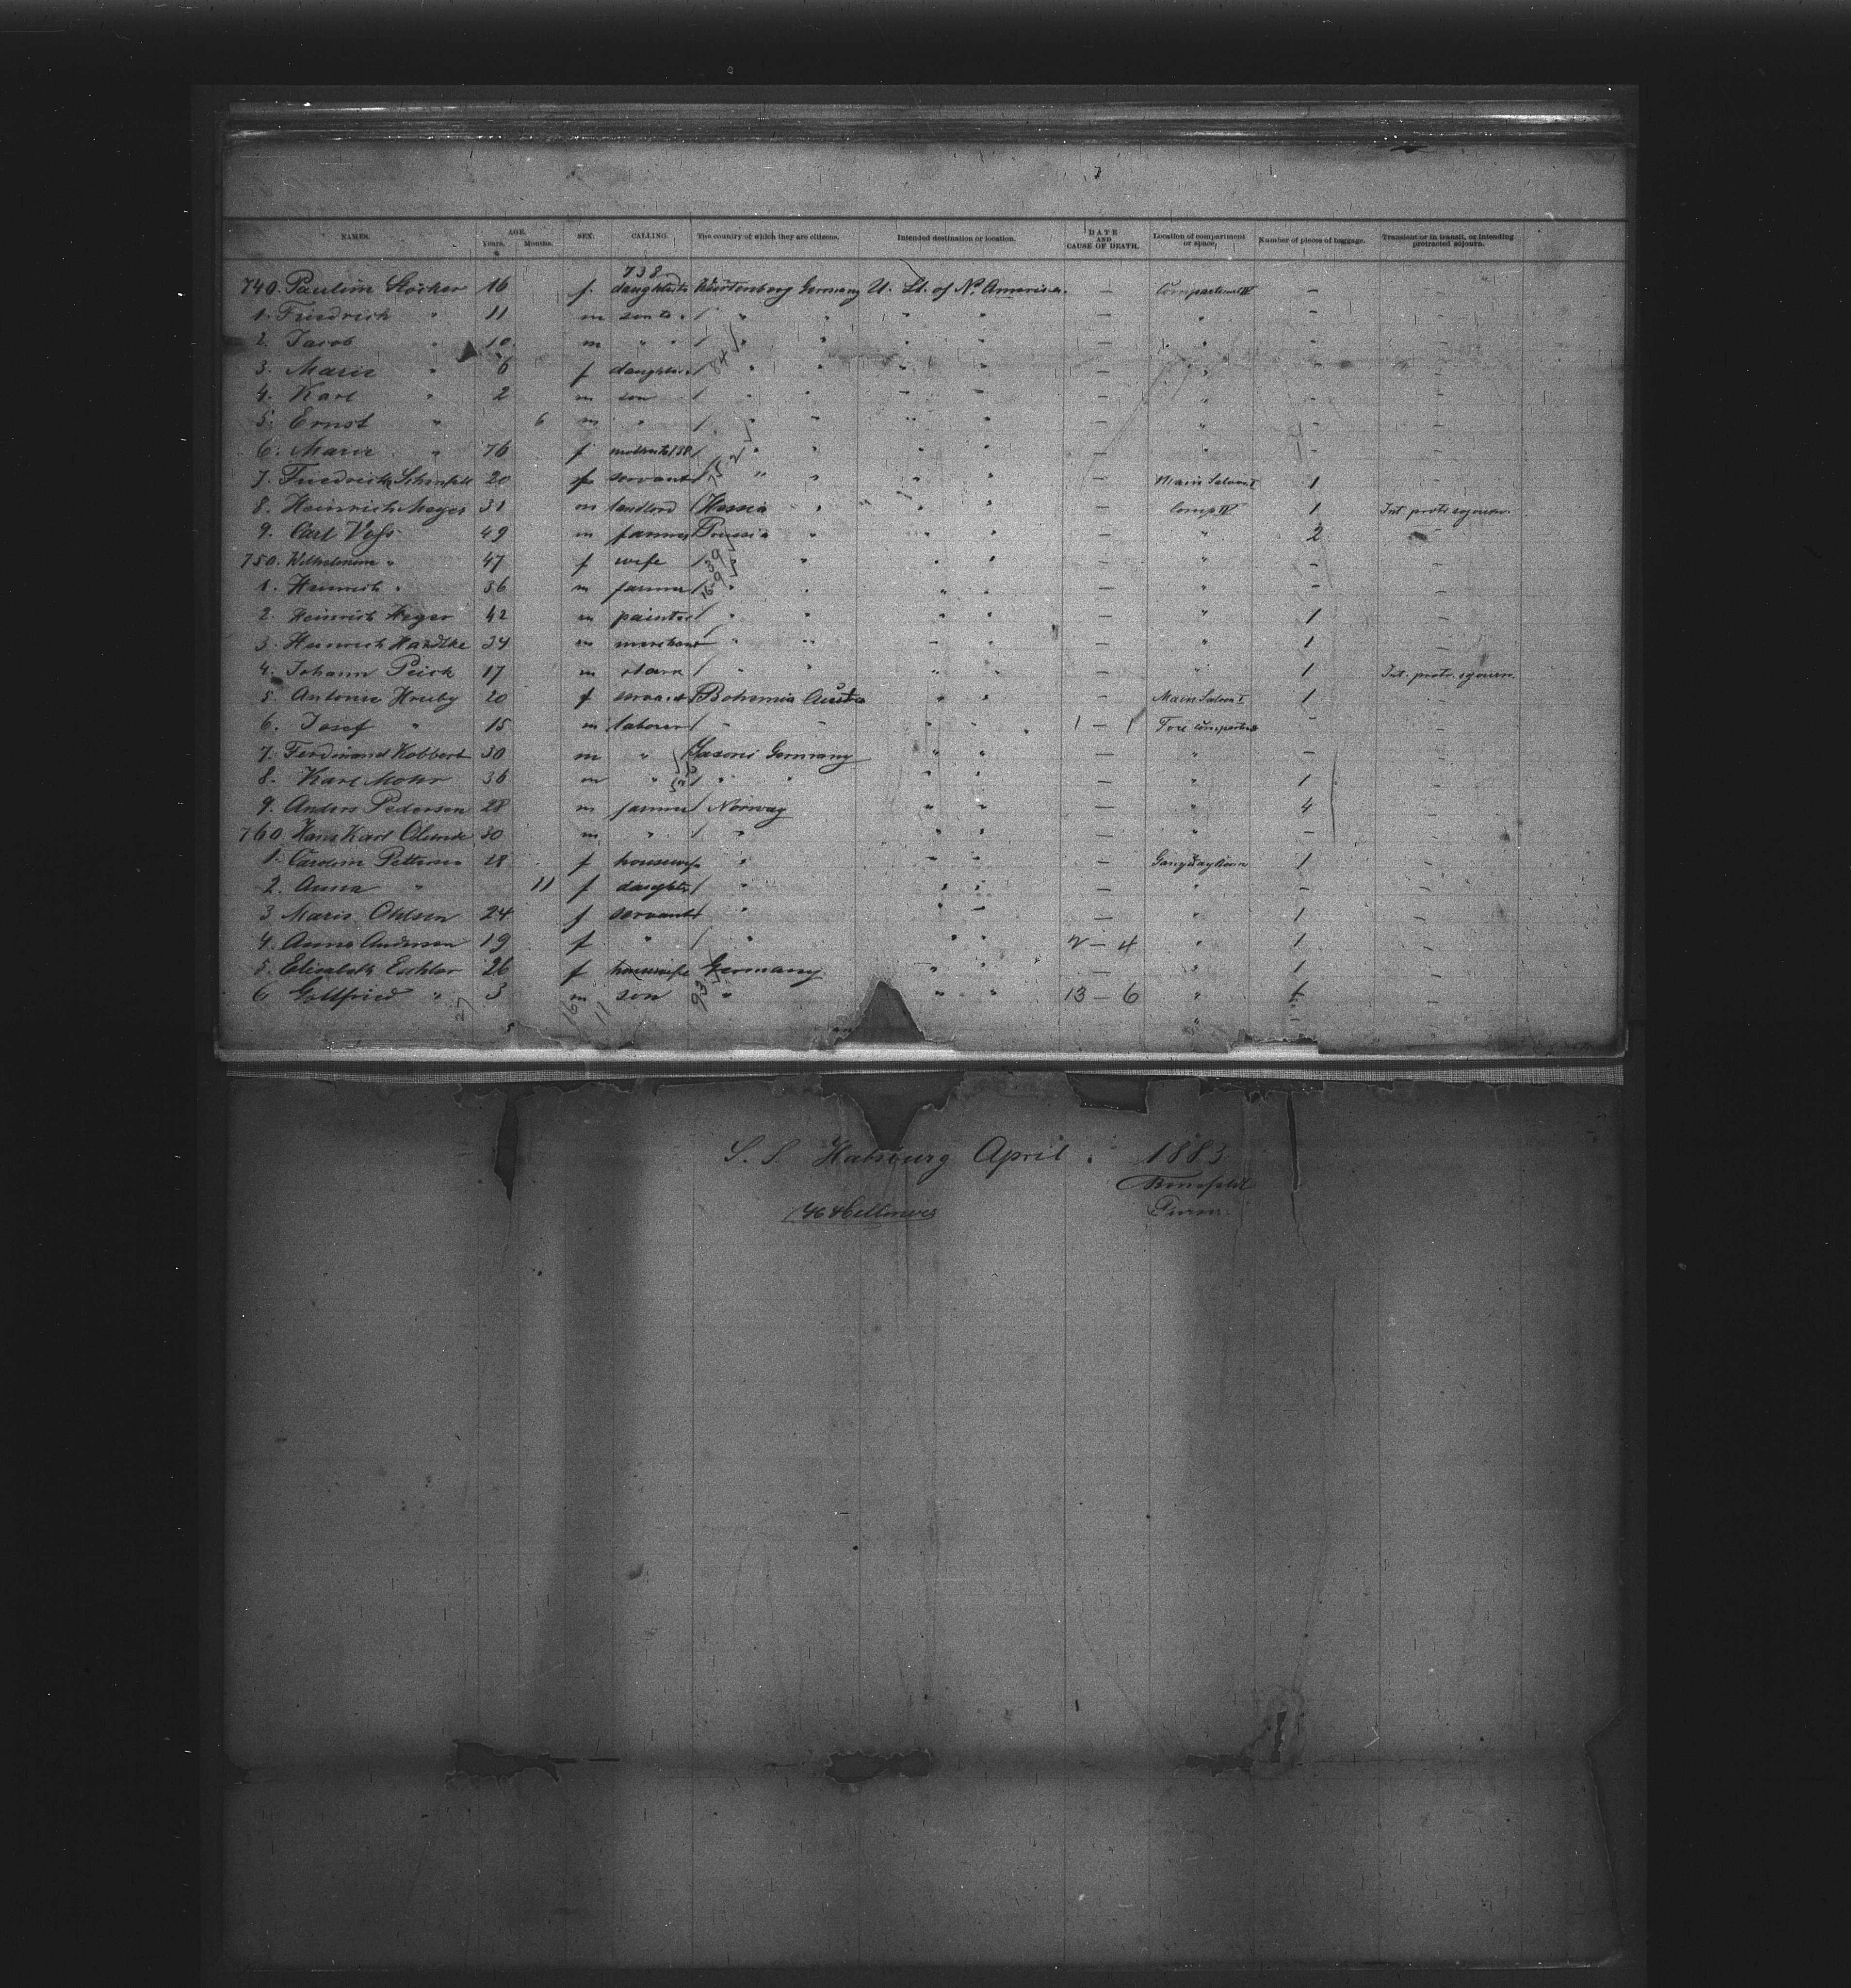 NAMES. AGE. Years. Months. SEX. CALLING. The country of which they are citizens. Intended destination or location. DATE AND CAUSE OF DEATH. Location of compartment or space. Number of pieces of baggage. Transient or in transit, or intending protracted sojourn.
738
740. Paulin Stocker 16 f. daughter to Würtemberg Germany U. St. of N. America. — Compartment IV — —
1. Friedrich " 11 m son to " " " " " — " - -
2. Jacob " 10 m " " " " " " — " - -
3. Marie " 6 f daughter " " " " — " - -
4. Karl " 2 m son " " " " — " - -
5. Ernst " 6 m " " " " " — " - -
6. Marie " 76 f mother to 738 " " " " — " - -
7. Friedrich 20 servant " " " " — Main Saloon I 1 -
8. Heinrich Meyer 31 m landlord Hessia " " " — Comp IV 1 Int. protr. sojourn.
9. Carl Voss 49 m farmer Prussia " " " — " 2 —
750. Wilhelmine " 47 f wife " " " " — " - -
1. Heinrich " 36 m farmer " " " " — " - -
2. Heinrich Heger 42 m painter " " " " — " 1 -
3. Heinrich Hardtke 34 m merchant " " " " — " 1 -
4. Johann Peick 17 m " " " " — " 1 Int. protr. sojourn.
5. Antonie Hruby 20 f servant Bohemia Austria " " — Main Saloon I 1 -
6. Josef " 15 m laborer " " " " 1 — 1 Fore compartm - -
7. Ferdinand Kobbert 30 m " Saxoni Germany " " " —
8. Karl Mohr 36 m " " " " " " 1
9. Anders Pedersen 28 m farmer Norway " " — " 4 -
760. Hans Karl 30 m " " " " — " — -
1. Carolin Petterson 28 f housewife " " " — Gangway Room 1 -
2. Anna " 11 f daughter " " " — " - -
3 Maris Ohlsen 24 f servant " " " — " 1 -
4. Anna Andersen 19 f " " " " 2 — 4 " 1 -
5. Elisabeth 26 f housewife Germany " " — " 1 -
6 Gottfried " 3 m son " " " 13 — 6 " 1 -
S. S. Habsburg April 1883